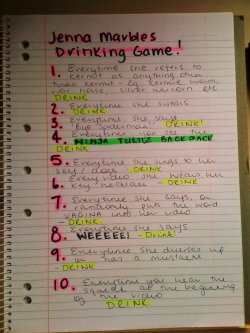 Jenna Marbles
Drinking Game!
1. Everytime she refers to
kermit as anything other
than kermit - Eg. kermie worm,
rat nose, silver unicorn etc
DRINK
2. Everytime she swears
- DRINK
3. Everytime she says
"But Spiderman" DRINK!
4. Everytime you see the
NINJA TURTLE BACKPACK
DRINK
5. Everytime she sings to her
self / dogs - DRINK
6. Every video she wears her
key necklace - DRINK
7. Everytime she says, or
randomly puts the word
VAGINA into her video
- DRINK
8. Everytime she says
WEEEEE! - Drink!
9. Everytime she dresses up
or has a mustache
- DRINK
10. Everytime you hear the
squeak at the beginning
of the video
DRINK